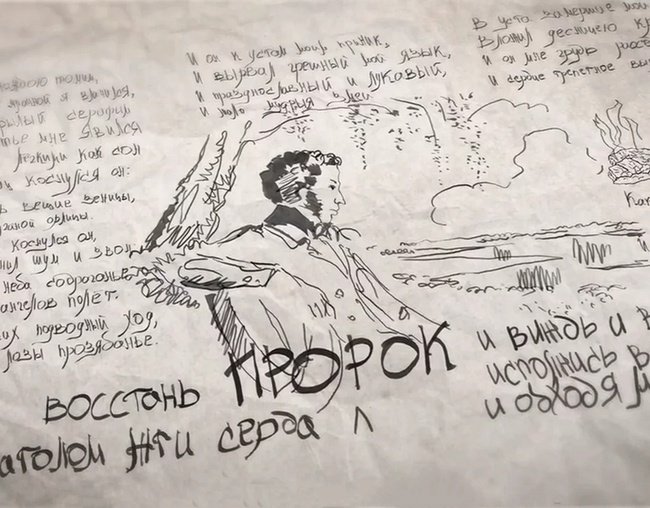 томим,
мрачной я влачился,
рылый серафим
тье мне явился
легкими как сон
коснулся он:
вещие зеницы,
ганой орлицы.
коснулся он,
нил шум и звон
неба содроганье
ангелов полёт.
их подводный ход,
лозы прозябанье.
И он к устам моим приник,
И вырвал грешный мой язык,
И празднословный и лукавый,
И жало мудрыя
В уста замершие мои
Вложил десницею к
и он мне грудь расс
И сердце трепетное вы
Как
восстань ПРОРОК
и виждь и в
исполнись в
и обходя м
аголом жги сердца л